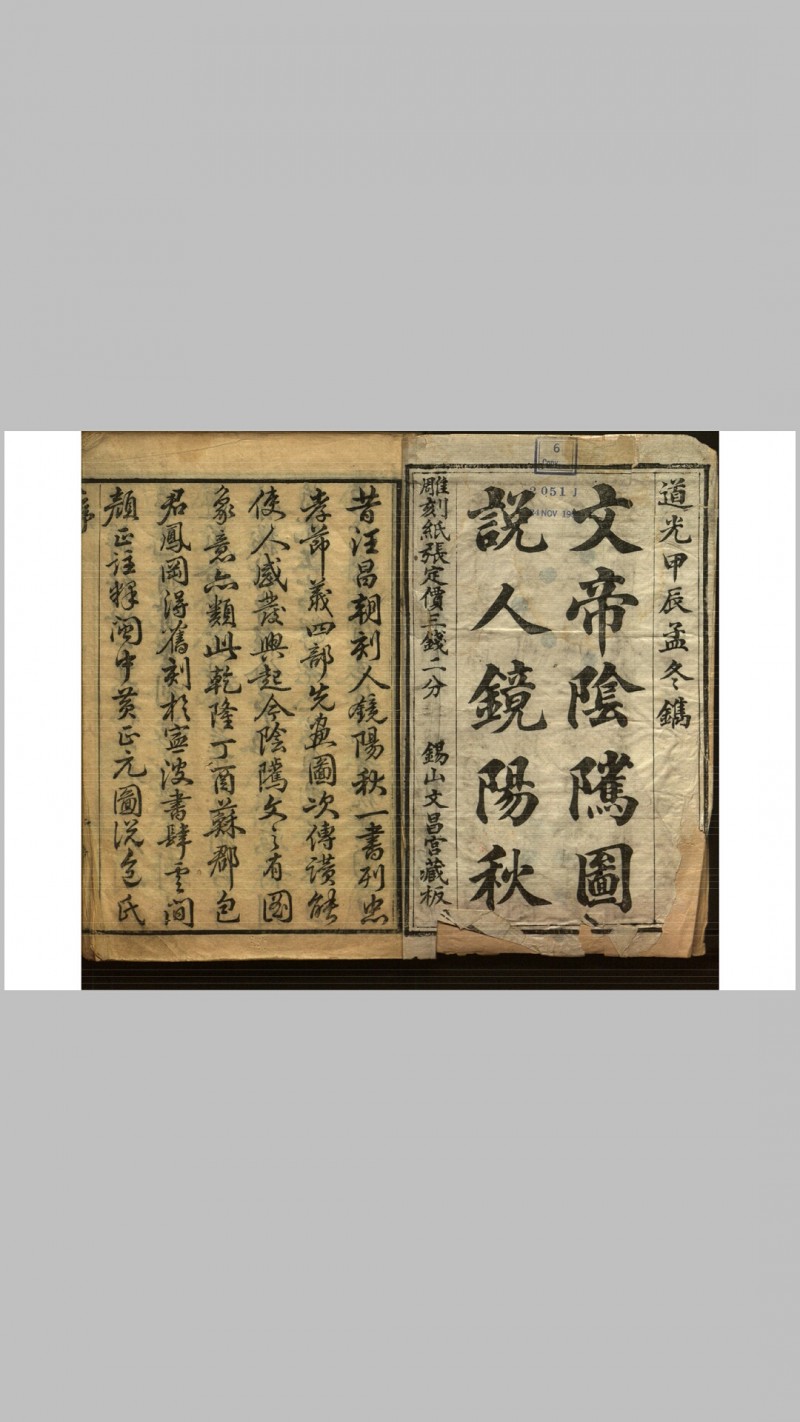 道光甲辰孟冬鐫
文帝陰騭圖
說人鏡陽秋
雕刻紙張定價三錢二分 錫山文昌宮藏板
6
Copy
2051J
NOV 19
昔汪昌朝刻人鏡陽秋一書列忠
孝節義四部先畫圖次傳讚能
使人感發興起今陰騭文之有圖
象意亦類此乾隆丁酉蘇郡包
君鳳岡得舊刻於寧波書肆雲間
顏正註釋閩中黃正元圖說包氏
序